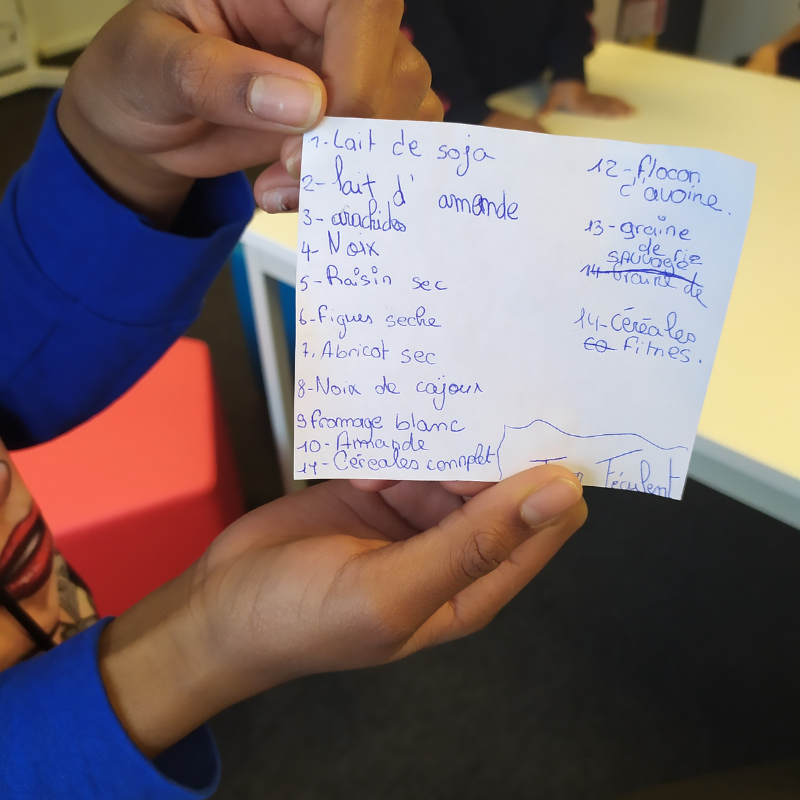 1-Lait de soja
2-lait d' amande
3-arachides
4-Noix
5-Raisin sec
6-figues seche
7. Abricot sec
8-Noix de cajoux
9 fromage blanc
10-Amande
11-Céreales connplet
12-flocon
d'avoine.
13-graine
de riz
sauvage
14-Graine de
14-Céréales
fitnes.
Féculent